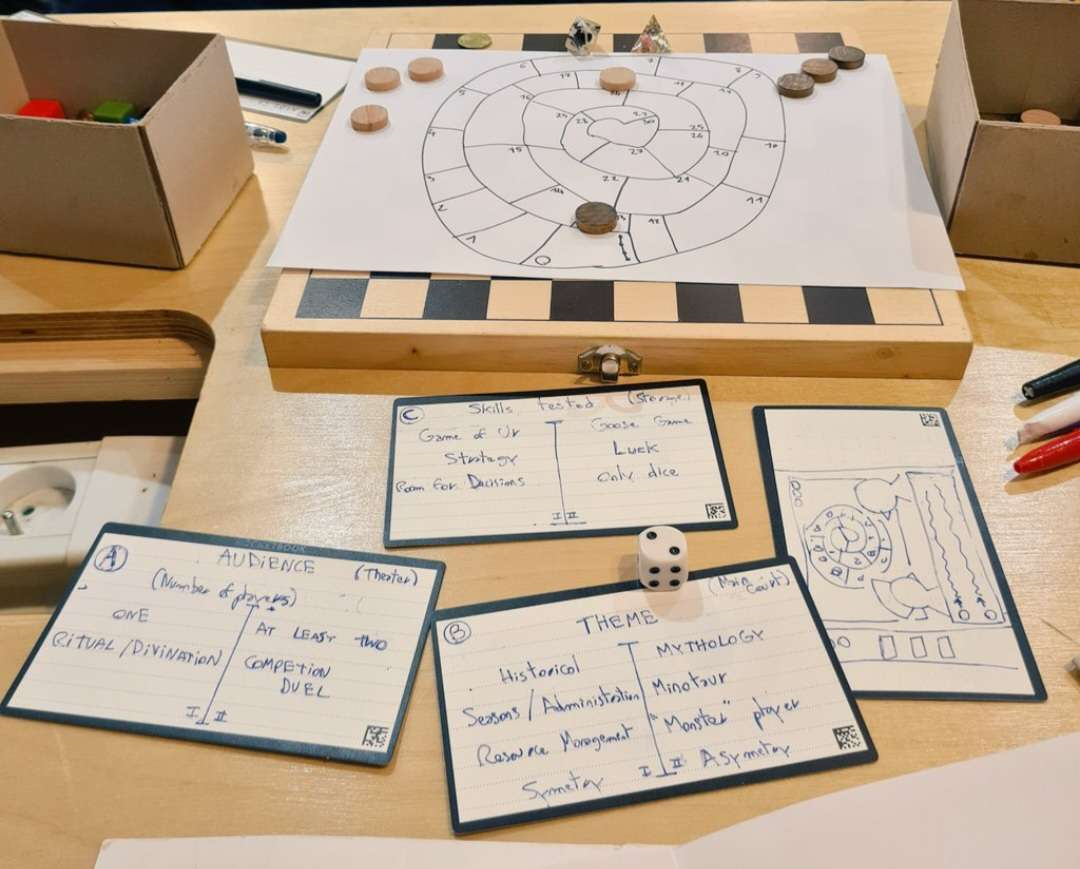 6
7
8
9
5
17
19
16
18
4
24
23
29
30
25
26
15
27
20
10
3
22
21
14
11
2
13
12
1
0
C
Skills tested (Storage)
Game of Ur
Strategy
Room for Decisions
I
Goose Game
Luck
Only dice
II
A
AUDIENCE (Theater)
(Number of players)
ONE
RITUAL/DIVINATION
I
AT LEAST TWO
COMPETION
DUEL
II
B
(Main Court)
THEME
Historical
Seasons/Administration
Resource Management
Symetry
I
MYTHOLOGY
Minotaur
"Monster" player
Asymetry
II